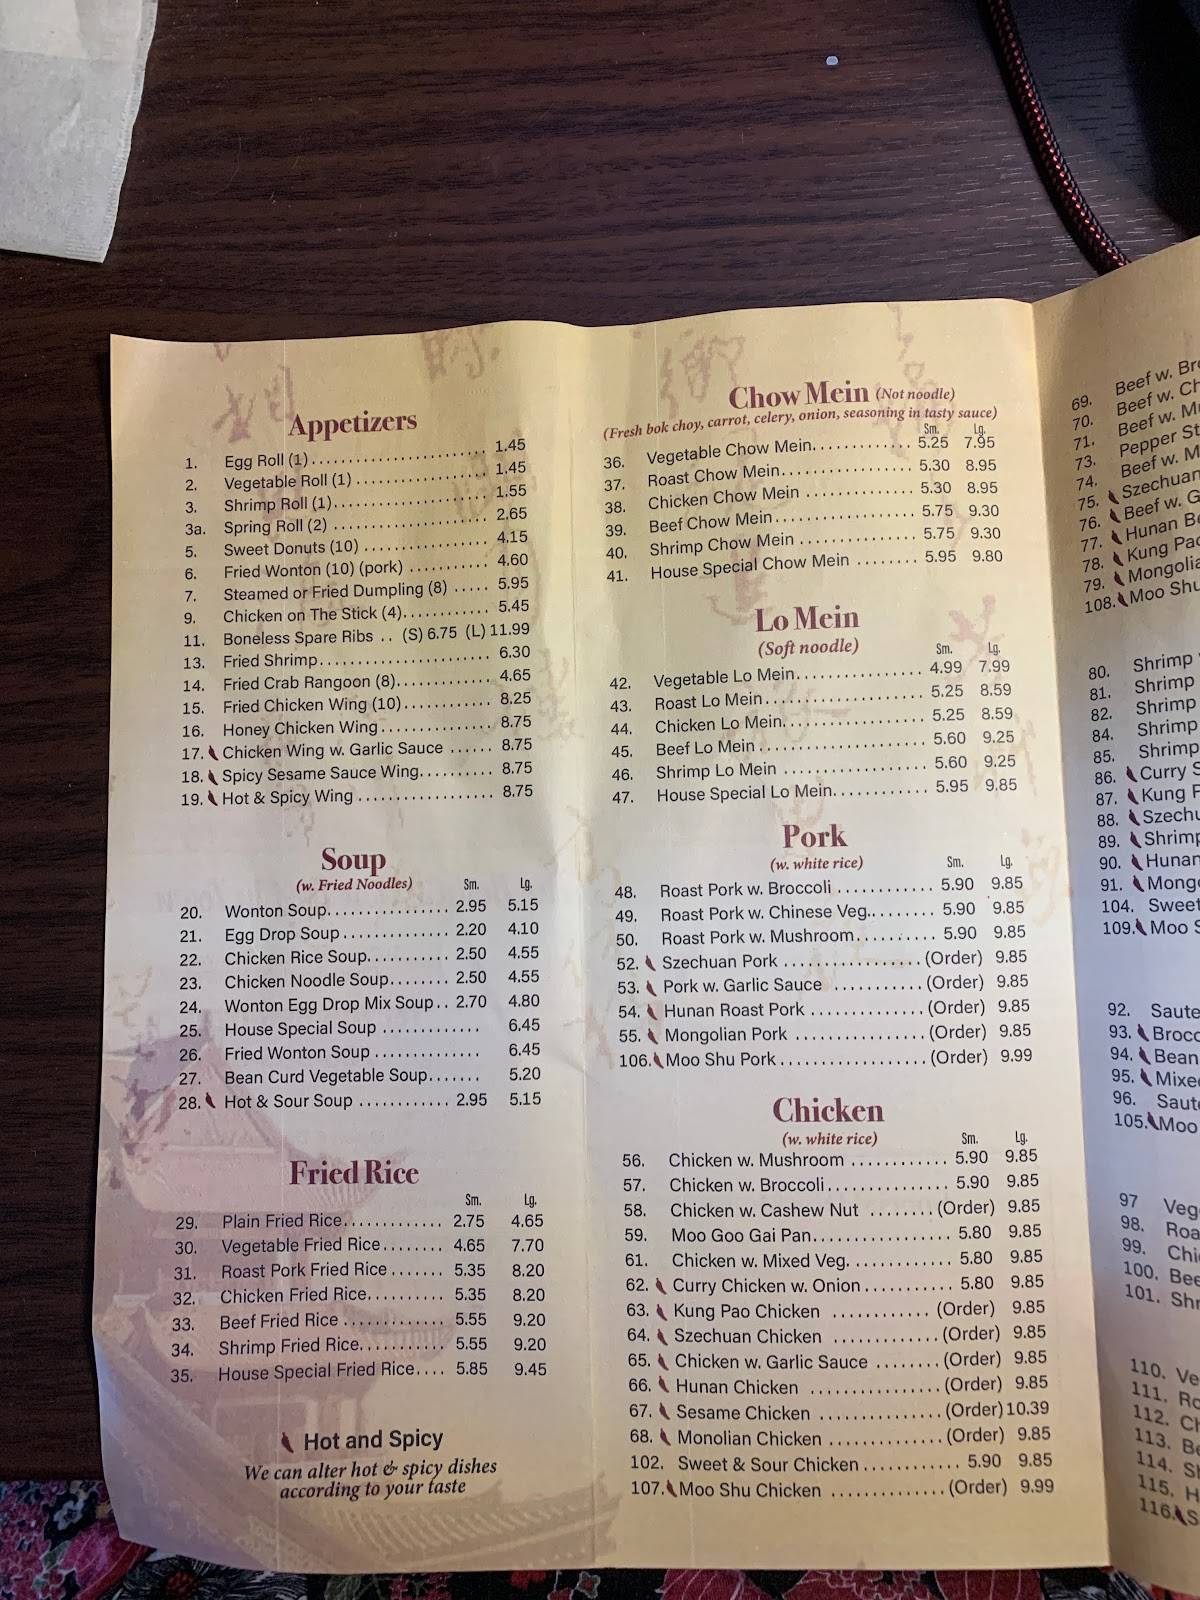 Appetizers
1. Egg Roll (1) 1.45
2. Vegetable Roll (1) 1.45
3. Shrimp Roll (1) 1.55
3a. Spring Roll (2) 2.65
5. Sweet Donuts (10) 4.15
6. Fried Wonton (10) (pork) 4.60
7. Steamed or Fried Dumpling (8) 5.95
9. Chicken on The Stick (4) 5.45
11. Boneless Spare Ribs (S) 6.75 (L) 11.99
13. Fried Shrimp 6.30
14. Fried Crab Rangoon (8) 4.65
15. Fried Chicken Wing (10) 8.25
16. Honey Chicken Wing 8.75
17. Chicken Wing w. Garlic Sauce 8.75
18. Spicy Sesame Sauce Wing 8.75
19. Hot & Spicy Wing 8.75
Soup
(w. Fried Noodles) Sm. Lg.
20. Wonton Soup 2.95 5.15
21. Egg Drop Soup 2.20 4.10
22. Chicken Rice Soup 2.50 4.55
23. Chicken Noodle Soup 2.50 4.55
24. Wonton Egg Drop Mix Soup 2.70 4.80
25. House Special Soup 6.45
26. Fried Wonton Soup 6.45
27. Bean Curd Vegetable Soup 5.20
28. Hot & Sour Soup 2.95 5.15
Fried Rice
Sm. Lg.
29. Plain Fried Rice 2.75 4.65
30. Vegetable Fried Rice 4.65 7.70
31. Roast Pork Fried Rice 5.35 8.20
32. Chicken Fried Rice 5.35 8.20
33. Beef Fried Rice 5.55 9.20
34. Shrimp Fried Rice 5.55 9.20
35. House Special Fried Rice 5.85 9.45
Hot and Spicy
We can alter hot & spicy dishes
according to your taste
Chow Mein (Not noodle)
(Fresh bok choy, carrot, celery, onion, seasoning in tasty sauce)
Sm. Lg.
36. Vegetable Chow Mein 5.25 7.95
37. Roast Chow Mein 5.30 8.95
38. Chicken Chow Mein 5.30 8.95
39. Beef Chow Mein 5.75 9.30
40. Shrimp Chow Mein 5.75 9.30
41. House Special Chow Mein 5.95 9.80
Lo Mein
(Soft noodle) Sm. Lg.
42. Vegetable Lo Mein 4.99 7.99
43. Roast Lo Mein 5.25 8.59
44. Chicken Lo Mein 5.25 8.59
45. Beef Lo Mein 5.60 9.25
46. Shrimp Lo Mein 5.60 9.25
47. House Special Lo Mein 5.95 9.85
Pork
(w. white rice) Sm. Lg.
48. Roast Pork w. Broccoli 5.90 9.85
49. Roast Pork w. Chinese Veg. 5.90 9.85
50. Roast Pork w. Mushroom 5.90 9.85
52. Szechuan Pork (Order) 9.85
53. Pork w. Garlic Sauce (Order) 9.85
54. Hunan Roast Pork (Order) 9.85
55. Mongolian Pork (Order) 9.85
106. Moo Shu Pork (Order) 9.99
Chicken
(w. white rice) Sm. Lg.
56. Chicken w. Mushroom 5.90 9.85
57. Chicken w. Broccoli 5.90 9.85
58. Chicken w. Cashew Nut (Order) 9.85
59. Moo Goo Gai Pan 5.80 9.85
61. Chicken w. Mixed Veg. 5.80 9.85
62. Curry Chicken w. Onion 5.80 9.85
63. Kung Pao Chicken (Order) 9.85
64. Szechuan Chicken (Order) 9.85
65. Chicken w. Garlic Sauce (Order) 9.85
66. Hunan Chicken (Order) 9.85
67. Sesame Chicken (Order) 10.39
68. Monolian Chicken (Order) 9.85
102. Sweet & Sour Chicken 5.90 9.85
107. Moo Shu Chicken (Order) 9.99
69. Beef w. Br
70. Beef w. Ch
71. Beef w. Mu
73. Pepper St
74. Beef w. M
75. Szechuan
76. Beef w. G
77. Hunan Be
78. Kung Pao
79. Mongolia
108. Moo Shu
80. Shrimp
81. Shrimp
82. Shrimp
84. Shrimp
85. Shrimp
86. Curry S
87. Kung P
88. Szechu
89. Shrimp
90. Hunan
91. Mong
104. Sweet
109. Moo S
92. Saute
93. Brocc
94. Bean
95. Mixe
96. Saut
105. Moo
97 Veg
98. Roa
99. Chi
100. Bee
101. Shr
110. Ve
111. Ro
112. Ch
113. Be
114. Sh
115. H
116. S